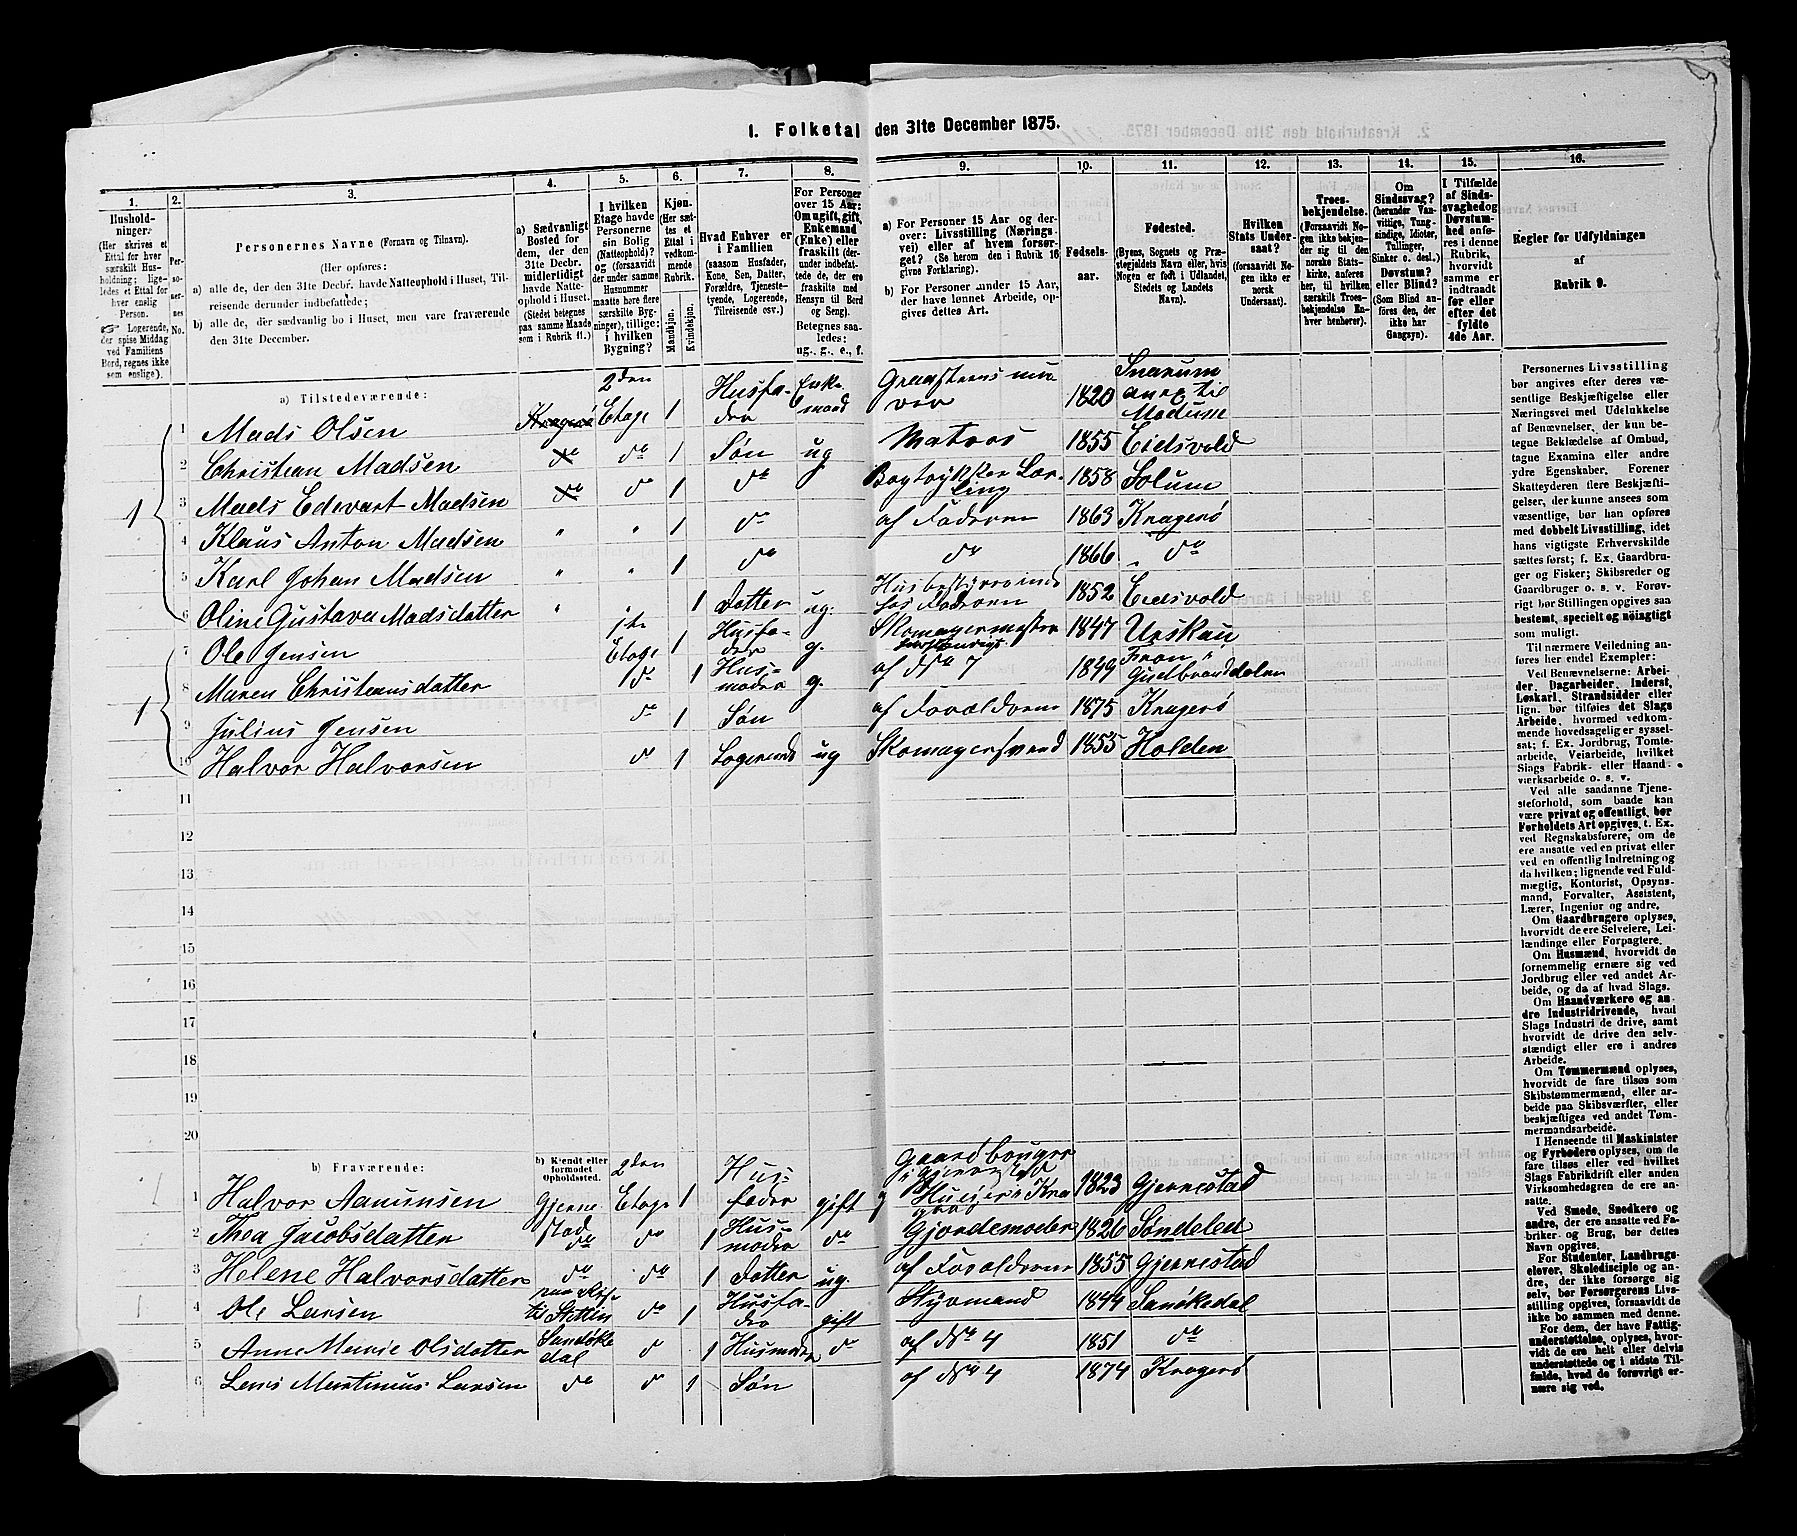 1. Folketal den 31te December 1875.
1.
2.
3.
4.
5.
6.
7.
8.
9.
10.
11.
12.
13.
14.
15.
16.
Husholdninger.
(Her skrives et Ettal for hver særskilt Husholdning; ligeledes et Ettal for hver enslig Person.
☞ Logerende, der spise Middag ved Familiens Bord, regnes ikke som enslige).
Personernes No.
Personernes Navne (Fornavn og Tilnavn).
(Her opføres:
a) alle de, der den 31te Decbr. havde Natteophold i Huset, Tilreisende derunder indbefattede;
b) alle de, der sædvanlig bo i Huset, men vare fraværende den 31te December.
a) Sædvanligt Bosted for dem, der den 31te Decbr. midlertidigt havde Natteophold i Huset. (Stedet betegnes paa samme Maade som i Rubrik 11.)
I hvilken Etage havde Personerne sin Bolig (Natteophold)? og (forsaavidt der under samme Husnummer maatte høre flere særskilte Bygninger), tillige: i hvilken Bygning?
Kjøn. (Her sættes et Ettal i vedkommende Rubrik.
Mandkjøn.
Kvindekjøn.
Hvad Enhver er i Familien (saasom Husfader, Kone, Søn, Datter, Forældre, Tjenestetyende, Logerende, Tilreisende osv.)
For Personer over 15 Aar: Om ugift, gift, Enkemand (Enke) eller fraskilt (derunder indbefattede de, der ere fraskilte med Hensyn til Bord og Seng).
Betegnes saaledes: ug., g., e., f.
a) For Personer 15 Aar og derover: Livsstilling (Næringsvei) eller af hvem forsørget? (Se herom den i Rubrik 16 givne Forklaring).
b) For Personer under 15 Aar, der have lønnet Arbeide, opgives dettes Art.
Fødselsaar.
Fødested.
(Byens, Sognets og Præstegjeldets Navn eller, hvis Nogen er født i Udlandet, Stedets og Landets Navn).
Hvilken Stats Undersaat? (forsaavidt Nogen ikke er norsk Undersaat).
Troesbekjendelse. (Forsaavidt Nogen ikke bekjender sig til den norske Statskirke, anføres her, til hvilken særskilt Troesbekjendelse Enhver henhører).
Om Sindssvag? (herunder Vanvittige, Tungsindige, Idioter, Tullinger, Sinker o. desl.) Døvstum? eller Blind? (Som Blind anføres den, der ikke har Gangsyn).
I Tilfælde af Sindssvaghed og Døvstumhed anføres i denne Rubrik, hvorvidt samme er indtraadt før eller efter det fyldte 4de Aar.
Regler for Udfyldningen af Rubrik 9.
a) Tilstedeværende:
1 1 Mads Olsen Kragerø 2den Etage 1 Husfader Enkemand 1820 Snarum anx til Modum
2 Christian Madsen do do 1 Søn ug Matros 1855 Eidsvold
3 Mads Edevart Madsen do do 1 do 1858 Solum
4 Klaus Anton Madsen " " 1 do af Faderen 1863 Kragerø
5 Karl Johan Madsen " " 1 do do 1866 do
6 Oline Gustava Madsdatter " " 1 Datter ug. Husbestyrerinde hos Faderen 1852 Eidsvold
1 7 Ole Jensen 1te Etage 1 Husfader g. Skomagermester 1847 Urskau
8 Maren Christiansdatter do 1 Husmoder g. af No 7 1849 Fron i Gudbrandsdalen
9 Julius Jensen do 1 Søn af Forældrene 1875 Kragerø
10 Halvor Halvorsen do 1 Logerende ug Skomagersvend 1855 Holden
11
12
13
14
15
16
17
18
19
20
b) Fraværende:
b) Kjendt eller formodet Opholdssted.
1 1 Halvor Aamunsen Gjernestad 2den Etage 1 Husfader gift 1823 Gjernestad
2 Thea Jacobsdatter do do 1 Husmoder do Gjordemoder 1826 Søndeled
3 Helene Halvorsdatter do do 1 Datter ug. af Forældrene 1855 Gjernestad
1 4 Ole Larsen til Stettin do 1 Husfader gift Styrmand 1844 Sanøkedal
5 Anne Marie Olsdatter Sanøkedal do 1 Husmoder do af No 4 1851 do
6 Martinius Larsen do do 1 Søn af No 4 1874 Kragerø
Personernes Livsstilling bør angives efter deres væsentlige Beskjæftigelse eller Næringsvei med Udelukkelse af Benævnelser, der kun betegne Beklædelse af Ombud, tagne Examina eller andre ydre Egenskaber. Forener Skatteyderen flere Beskjæftigelser, der kunne ansees som væsentlige, bør han opføres med dobbelt Livsstilling, idet hans vigtigste Erhvervskilde sættes først; f. Ex. Gaardbruger og Fisker; Skibsreder og Gaardbruger o. s. v. Forøvrigt bør Stillingen opgives saa bestemt, specielt og nøiagtigt som muligt.
To nærmere Veiledning anføres her endel Exempler:
Ved Benævnelserne: Arbeider, Dagarbeider, Inderst, Løskarl, Strandsidder eller lign. bør tilføies det Slags Arbeide, hvormed vedkommende hovedsagelig er sysselsat; f. Ex. Jordbrug, Tomtearbeide, Veiarbeide, hvilket Slags Fabrik- eller Haandværksarbeide o. s. v.
Ved alle saadanne Tjenesteforhold, som baade kan være privat og offentligt, bør Forholdets Art opgives, t. Ex. ved Regnskabsførere, om de ere ansatte ved en privat eller ved en offentlig Indretning og da hvilken; lignende ved Fuldmægtig, Kontorist, Opsynsmand, Forvalter, Assistent, Lærer, Ingeniør og andre.
Om Gaardbrugere oplyses, hvorvidt de ere Selveiere, Leilændinge eller Forpagtere.
Om Husmænd, hvorvidt de fornemmelig ernære sig ved Jordbrug eller ved andet Arbeide, og da af hvad Slags.
Om Haandværkere og andre Industridrivende, hvad Slags Industri de drive, samt hvorvidt de drive den selvstændigt eller ere i andres Arbeide.
Om Tømmermænd oplyses, hvorvidt de fare tilsøs som Skibstømmermænd, eller arbeide paa Skibsværfter, eller beskjæftiges ved andet Tømmermandsarbeide.
I Henseende til Maskinister og Fyrbødere oplyses, om de fare tilsøs eller ved hvilket Slags Fabrikdrift eller anden Virksomhedsgren de ere ansatte.
Ved Smede, Snedkere og andre, der ere ansatte ved Fabriker og Brug, bør dettes Navn opgives.
For Studenter, Landbrugselever, Skoledisciple og andre, der ikke forsørge sig selv, bør Forsørgerens Livsstilling opgives, forsaavidt de ikke bo sammen med denne.
For dem, der have Fattigunderstøttelse, oplyses, hvorvidt de ere helt eller delvis understøttede og i sidste Tilfælde, hvad de forøvrigt ernære sig ved.